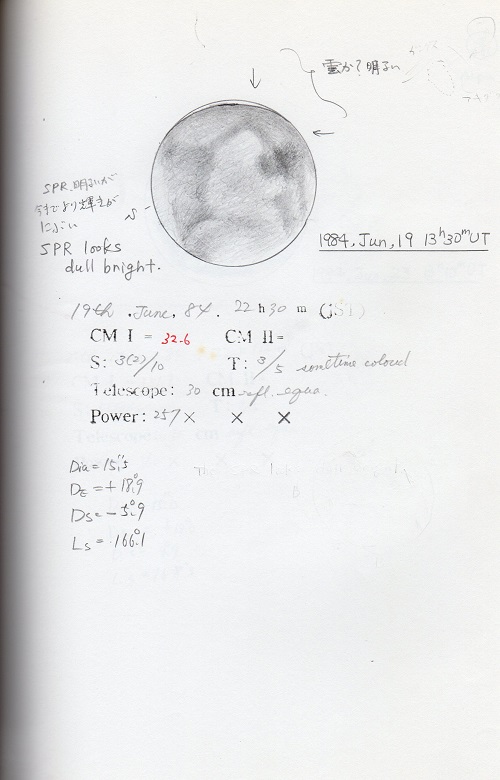 雲か?明るい
SPR.明るいが
今までより輝きが
にぶい
S
SPR looks
dull bright.
1984, Jun, 19 13h30m UT
19th , June, 84. 22 h 30 m (JST)
CM I = 32.6 CM II=
S: 3(2)/10 T: 3/5 sometime
Telescope: 30 cm refl. equa.
Power: 257× × ×
Dia = 15."5
DE = +18.°9
DS = -5.°9
LS = 166.°1